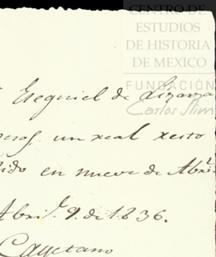 CENTRO DE
ESTUDIOS
DE HISTORIA
DE MEXICO
FUNDACIÓN
Carlos Slim
Esequiel de Lizarza
un real xesto
en nueve de Abril
Abril 9. de 1836.
Cayetano